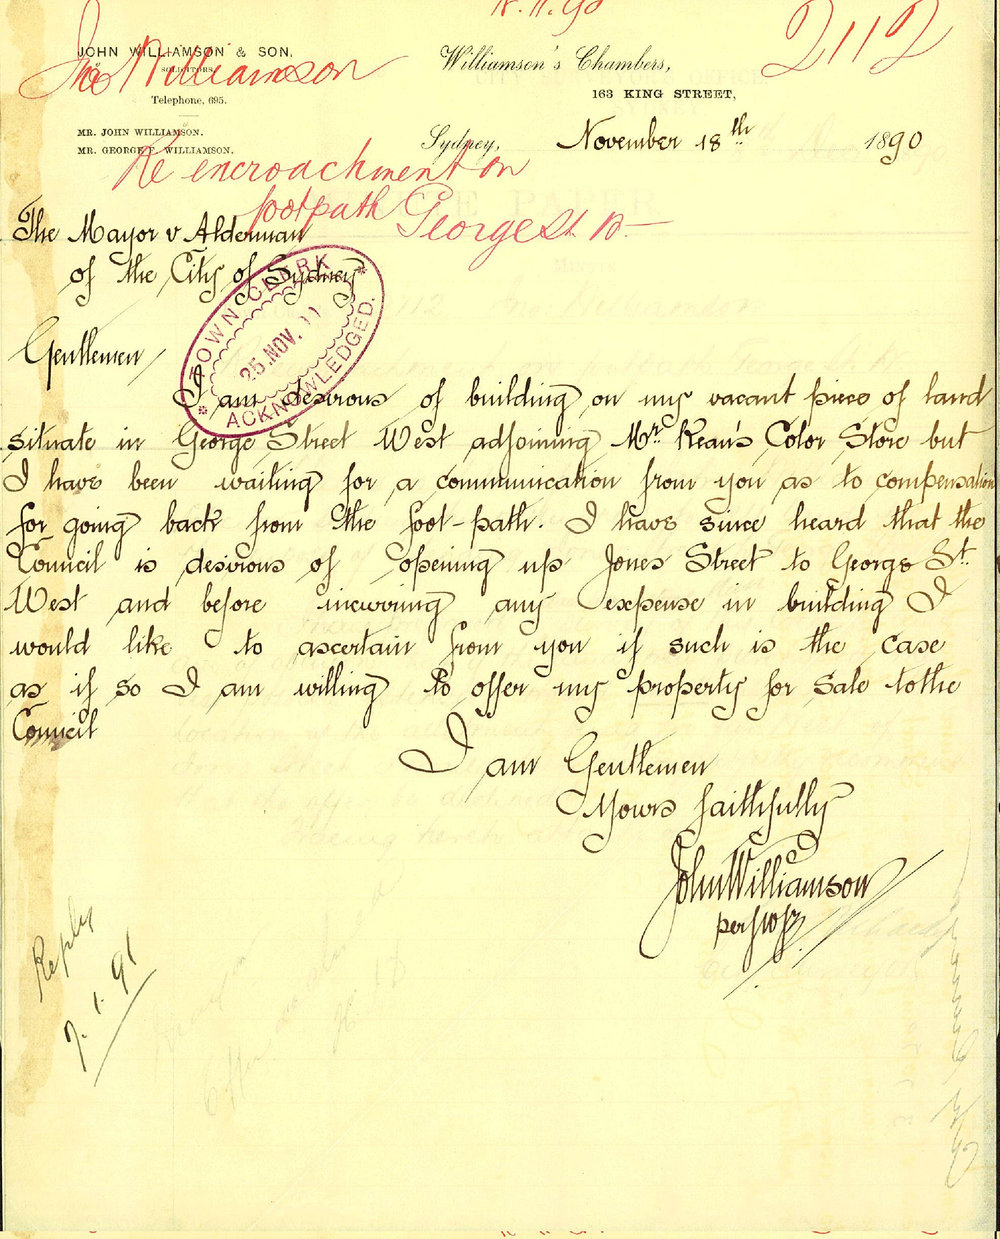 18.11.90
2112
JOHN WILLIAMSON & SON,
SOLICITORS
Telephone, 695.
MR. JOHN WILLIAMSON.
MR. GEORGE F. WILLIAMSON.
Jno Williamson
Williamson's Chambers,
163 KING STREET,
Sydney, November 18th 1890
Re encroachment on
footpath George St. W
The Mayor & Alderman
of the City of Sydney
TOWN CLERK
25 NOV.
ACKNOWLEDGED.
Gentlemen
I am desirous of building on my vacant piece of land
situate in George Street West adjoining Mr McKean's Color Store but
I have been waiting for a communication from you as to compensation
for going back from the foot-path. I have since heard that the
Council is desirous of opening up Jones Street to George St.
West and before incurring any expense in building I
would like to ascertain from you if such is the case
as if so I am willing to offer my property for sale to the
Council
I am Gentlemen
Yours faithfully
John Williamson
per
Reply
7.1.91